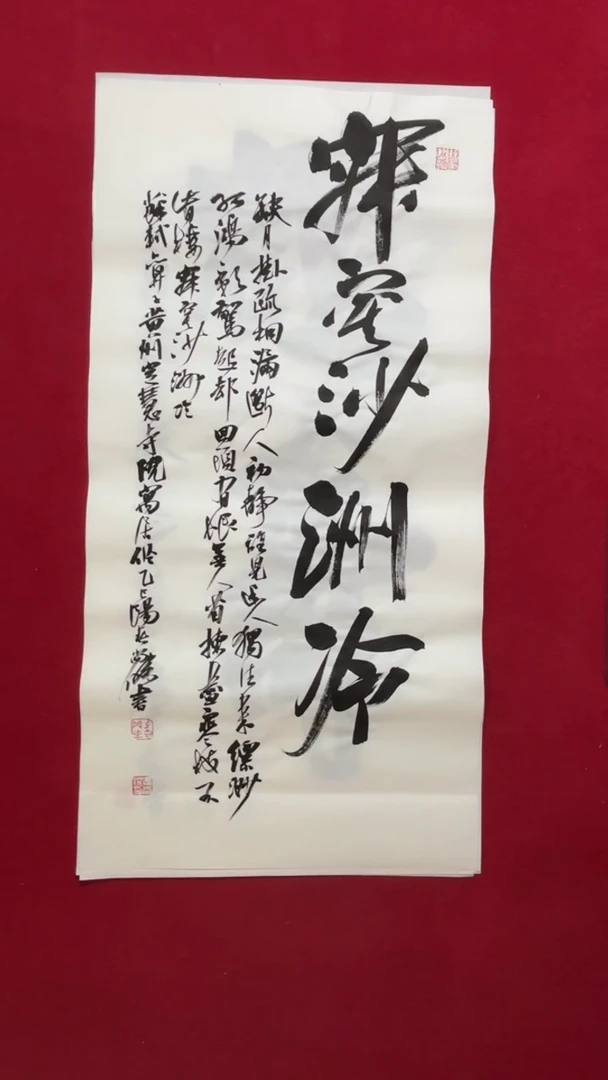 寂寞沙洲冷
缺月掛疏桐漏斷人初靜誰見幽人獨往來縹緲
孤鴻影驚起却回頭有恨無人省揀盡寒枝不
肯棲寂寞沙洲冷
蘇軾黃州定慧寺院寓居作乙巳陽春書